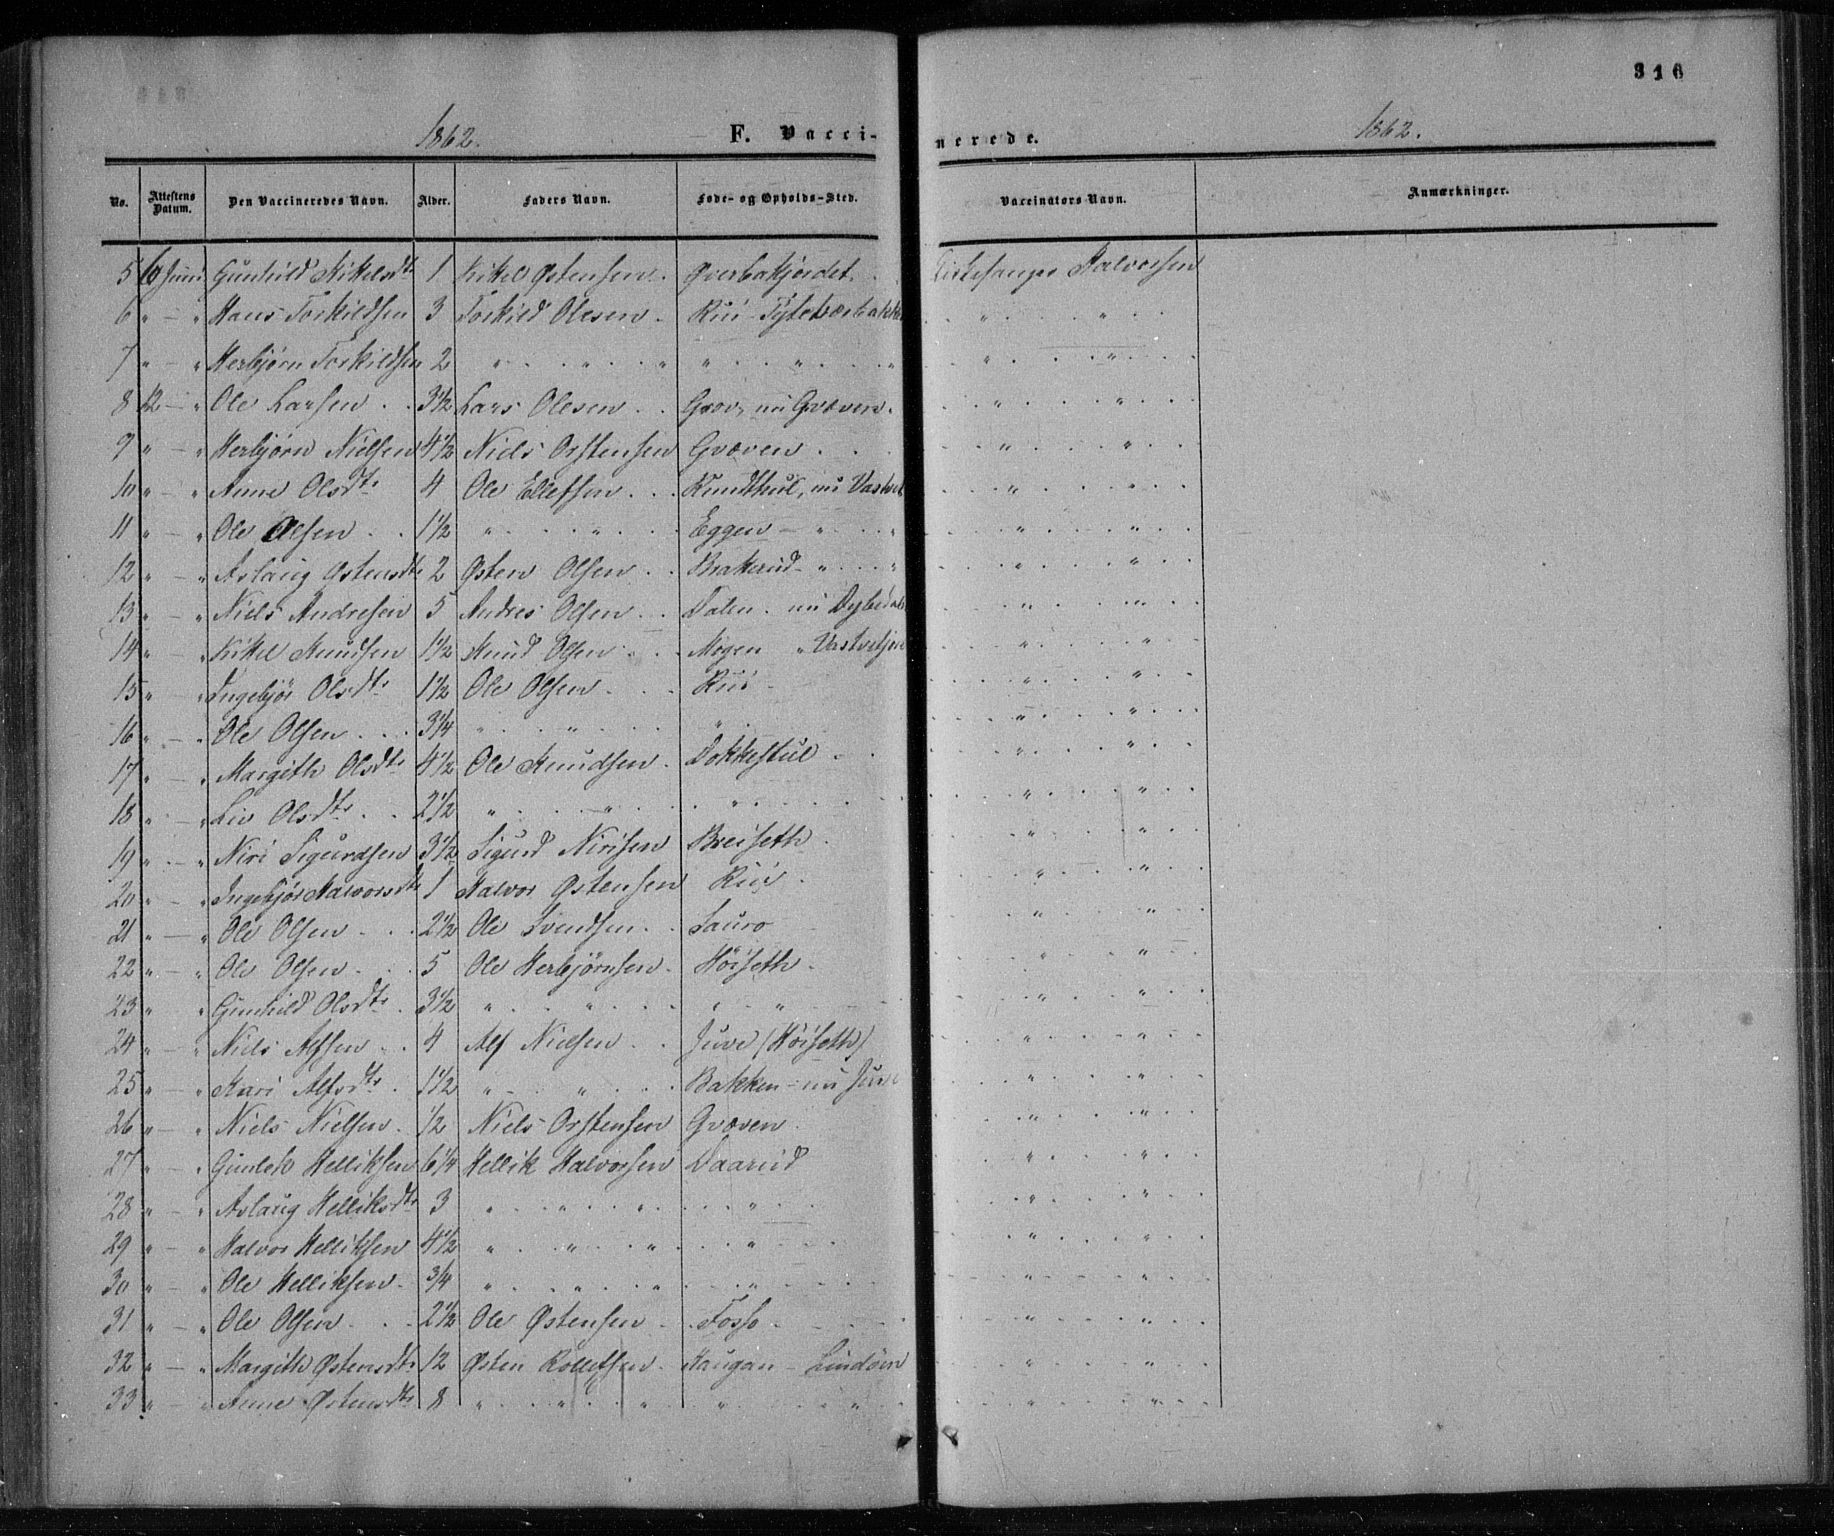 316
1862. F. Vacci-
nerede. 1862.
No. Attestens Datum. Den Vaccineredes Navn. Alder. Faders Navn. Føde- og Opholds-Sted. Vaccinators Navn. Anmærkninger.
5 6 Juni Gunhild Kikelsdtr 1 Kikel Østensen Øverbakjordet. Kirkesanger Halvorsen
6 " — " Hans Torkildsen 3 Torkild Olesen . Rui - " "
7 " — " Herbjørn Torkildsen 2 " " " " " " " "
8 12 — " Ole Larsen . . 3½ Lars Olesen . . Grov, nu Gvæven. " "
9 " — " Herbjørn Nielsen 4½ Niels Orstensen Gvæven . . " "
10 " — " Anne Olsdtr 4 Ole Ellefsen . . Rundhul, nu " "
11 " — " Ole Olsen . . 1½ " " Eggen — " " " "
12 " — " Aslaug Østensdtr 2 Østen Olsen . . Brakerud - " " " "
13 " — " Niels Andresen 5 Andres Olsen . . Dalen . nu " "
14 " — " Kikel Knudsen 1½ Knud Olsen . . Mogen " " "
15 " — " Ingebjør Olsdtr 1½ Ole Olsen . . Rui - " "
16 " — " Ole Olsen . . 3¼ " " " " "
17 " — " Margith Olsdtr 4½ Ole Knudsen . Dokkestul . " "
18 " — " Liv Olsdtr . . 2½ " " " " "
19 " — " Niri Sigurdsen 3½ Sigurd Nirisen Breiseth . " "
20 " — " Ingebjør Halvorsdtr 1 Halvor Østensen Rui . " "
21 " — " Ole Olsen . . 2½ Ole Svendsen . . Sauro " "
22 " — " Ole Olsen . . 5 Ole Herbjørnsen . Höiseth . " "
23 " " Gunhild Olsdtr . 3½ " " " " " "
24 " — " Niels Alfsen . . 4 Alf Nielsen . . Juve (Höiseth) " "
25 " — " Kari Alfsdtr . 1½ " " Bakken - nu Juve " "
26 " — " Niels Nielsen . ½ Niels Orstensen Gvæven . " "
27 " — " Gunlek Helliksen 6¼ Hellik Halvorsen Daarud " "
28 " — " Aslaug Helliksdtr 3 " " " " " "
29 " — " Halvor Helliksen 4½ " " " " " "
30 " — " Ole Helliksen . ¾ " " " " " "
31 " — " Ole Olsen . . 2½ Ole Østensen . Fosso . " "
32 " — " Margith Østensdtr 12 Østen Rollefsen . Haugan - Lindöen " "
33 " — " Anne Østensdtr 8 " " " " " " "